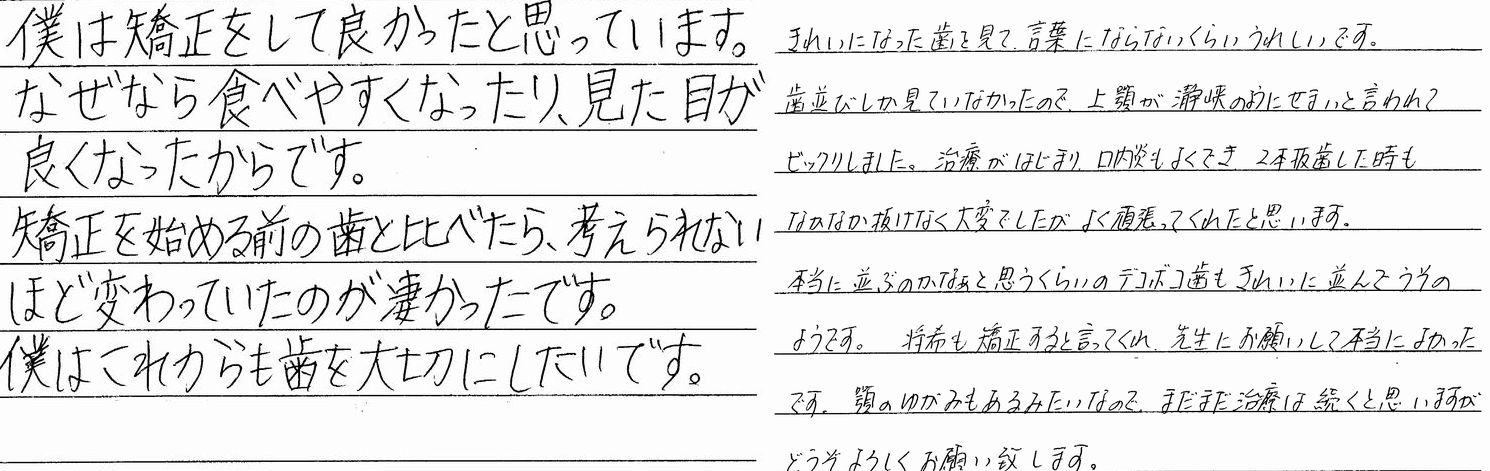 僕は矯正をして良かったと思っています。
なぜなら食べやすくなったり、見た目が
良くなったからです。
矯正を始める前の歯と比べたら、考えられない
ほど変わっていたのが凄かったです。
僕はこれからも歯を大切にしたいです。
きれいになった歯を見て、言葉にならないくらいうれしいです。
歯並びしか見ていなかったので、上顎が瀞峡のようにせまいと言われて
ビックリしました。治療がはじまり、口内炎もよくでき、2本抜歯した時も
なかなか抜けなく大変でしたが よく頑張ってくれたと思います。
本当に並ぶのかなぁと思うくらいのデコボコ歯もきれいに並んでうその
ようです。 将希も矯正すると言ってくれ、先生にお願いして本当によかった
です。 顎のゆがみもあるみたいなので、まだまだ治療は続くと思いますが
どうぞよろしくお願い致します。